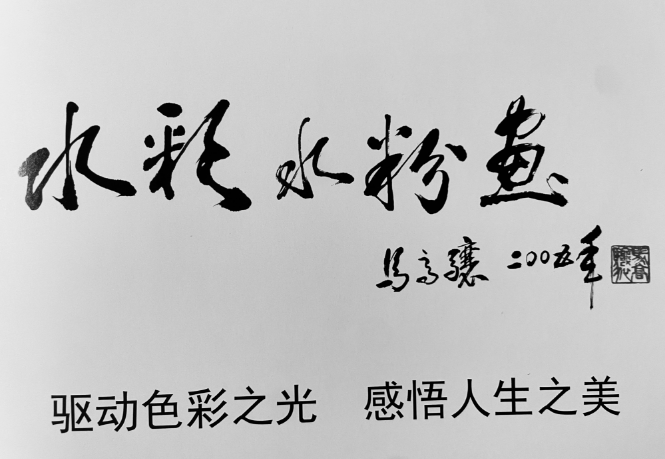 水彩水粉画
马高骧 二〇〇五年
驱动色彩之光 感悟人生之美